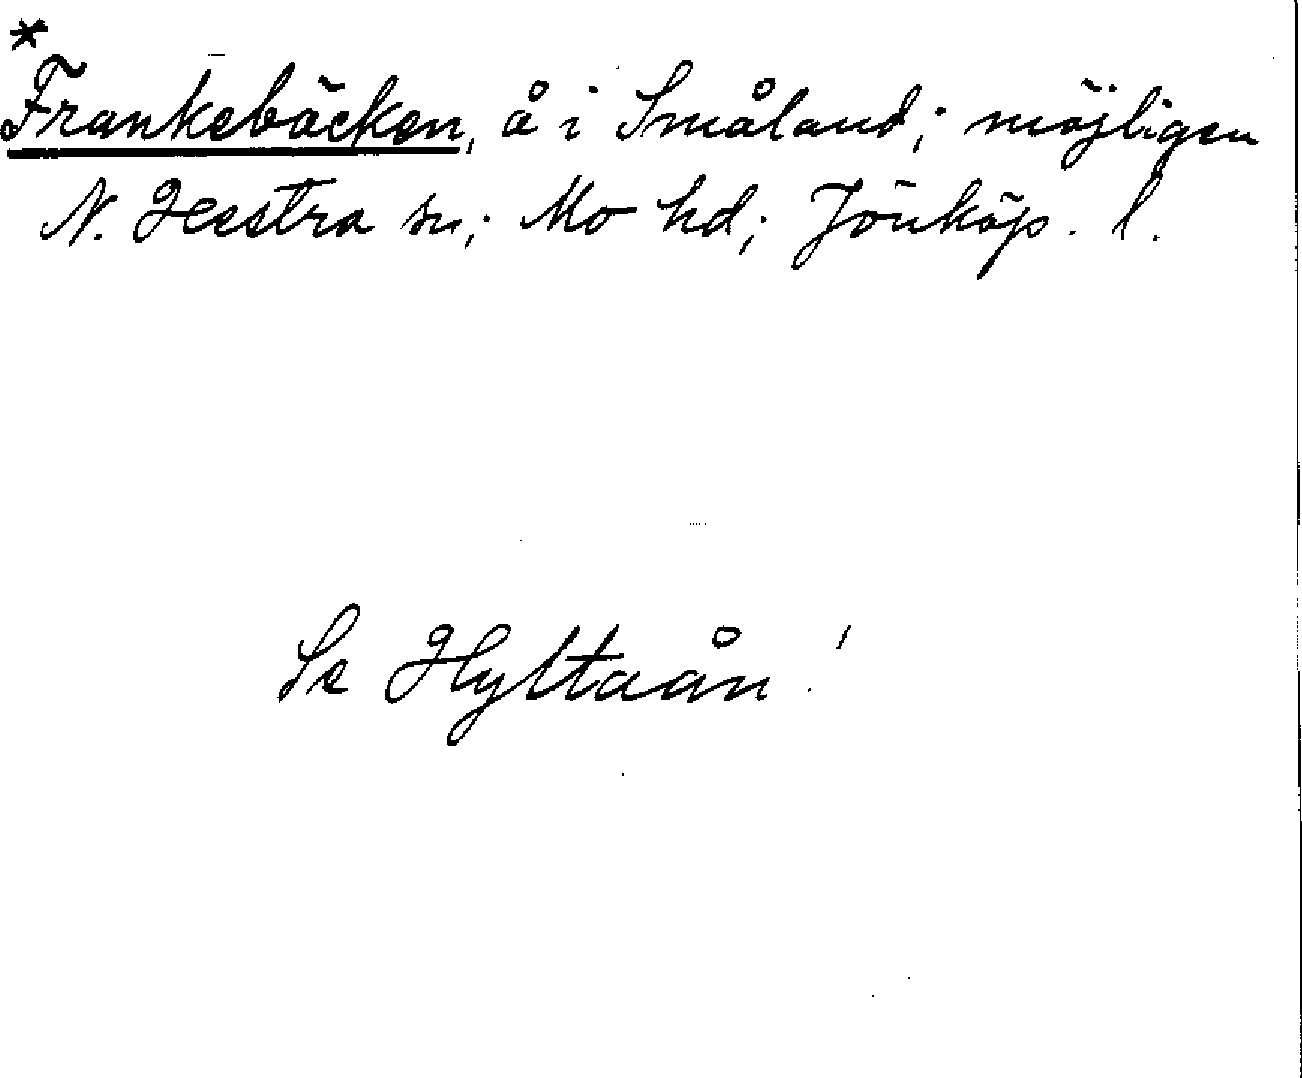 *
Frankebäcken, å i Småland; möjligen
N. Hestra sn; Mo hd; Jönköp. l.
Se Hyltaån!